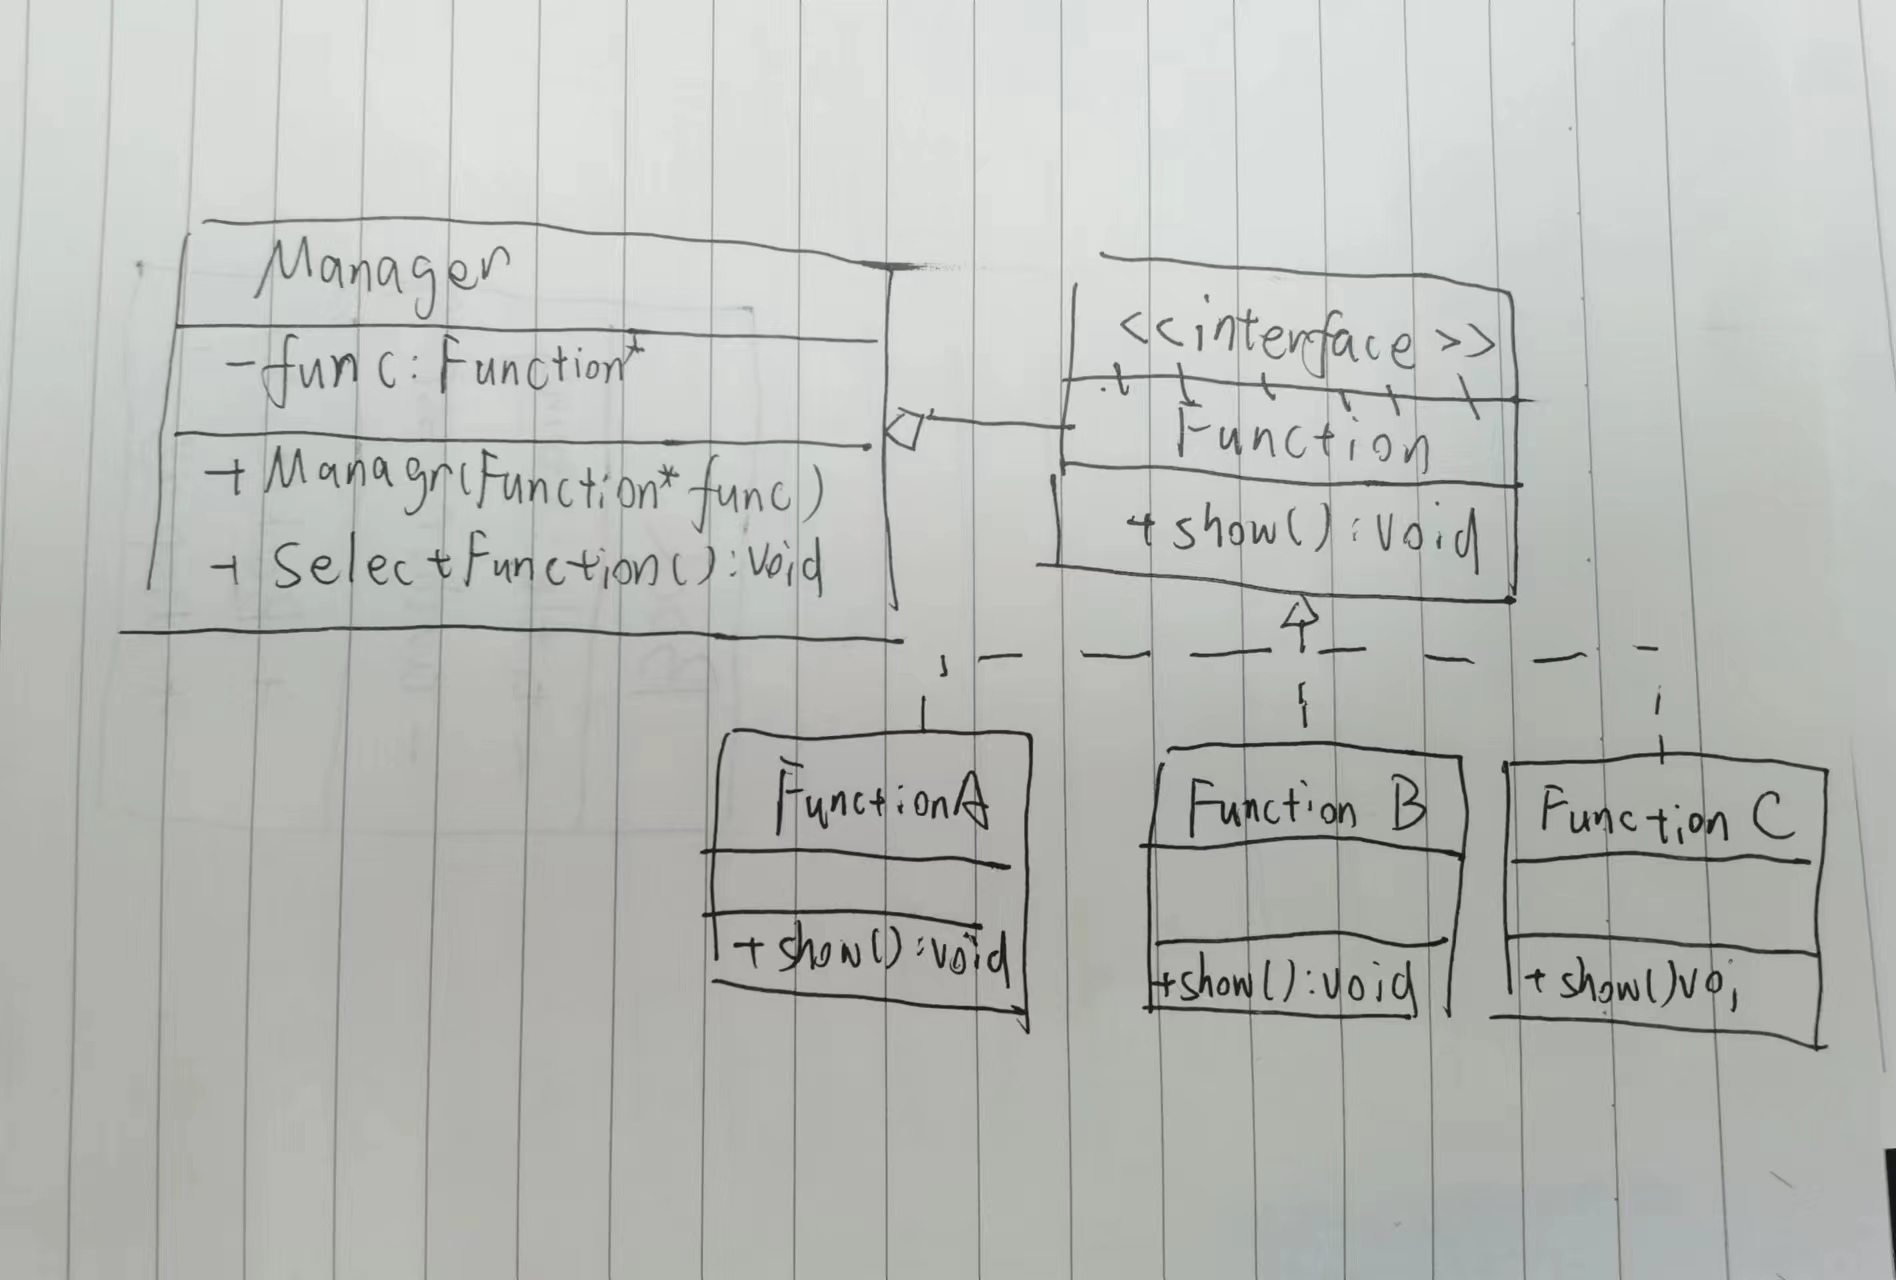 Manager
-func: Function*
+ Managr(Function* func)
+ SelectFunction(): void
<<interface>>
Function
+ show(): void
FunctionA
+ show(): void
Function B
+show(): void
Function C
+ show()voi